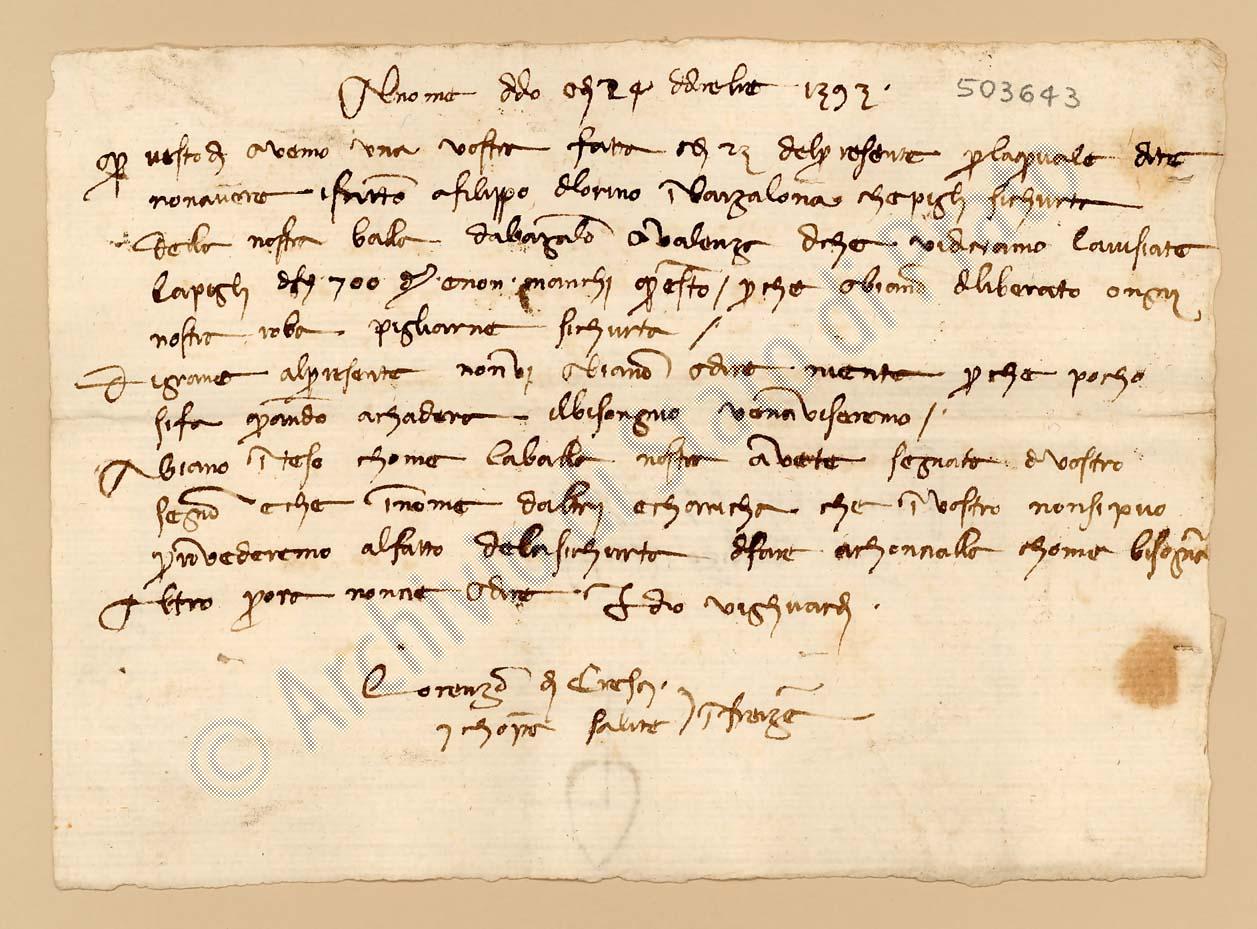 Al nome ddio a dì 24 ddicebre 1393.
503643
Questo dì avemo una vostra fatta a dì 23 del presente p la quale dite
non avere ischritto a Filippo di Lorino in Barzalona che pigli sichurta
delle nostre balle da Barzalo a Valenza di che vi diciamo l avisiate
la pigli di f 700 d oro e non manchi questo / p che abiamo diliberato ongni
nostra roba pigliarne sichurta /
Di grane al presente non vi abiamo a dire niente p che pocho
si fa quando achadera il bisongno ve n aviseremo /
Abiano inteso chome la balla nostra avete segnata di vostro
segno e che in nome d altri e charicha che in vostro non si puo
provederemo al fatto dela sichurta di fare achoncialla chome bisogna
Altro p ora non c e a dire. Idio vi ghuardi.
Lorenzo di Cresci.
i chopa salute ) in Firenze
© Archivio di Stato di Prato